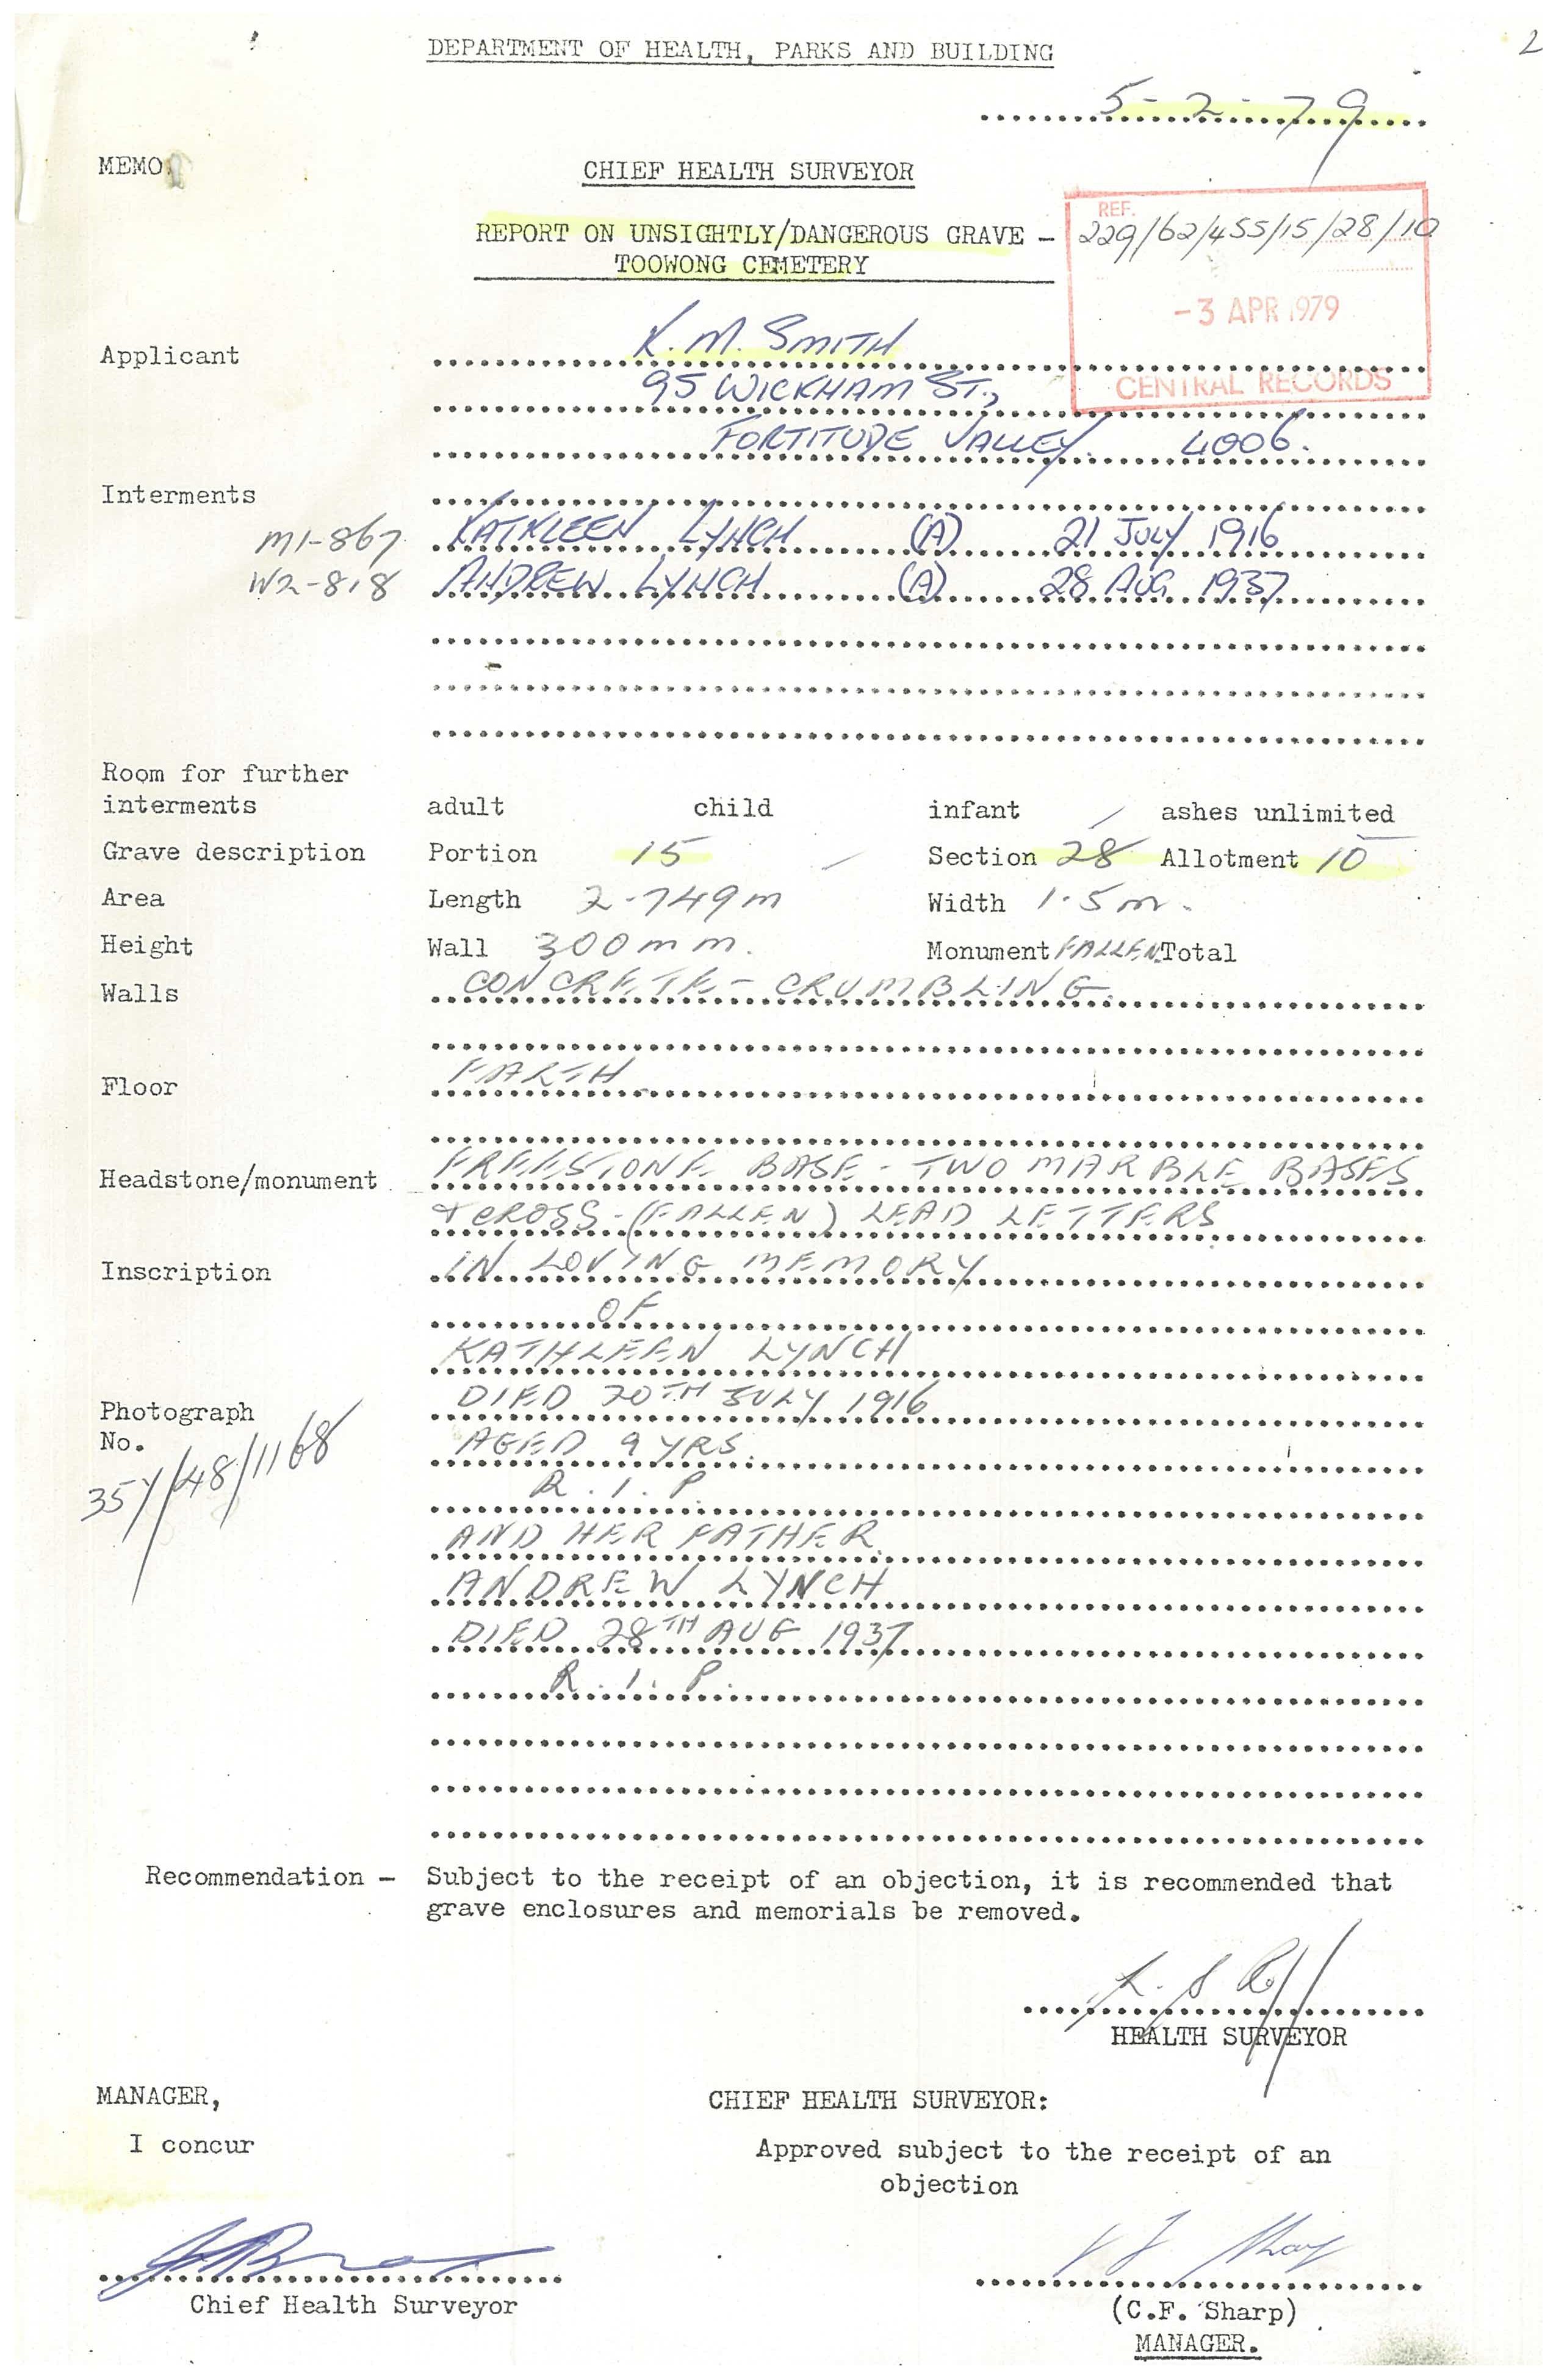 2
DEPARTMENT OF HEALTH, PARKS AND BUILDING
5-2-79
MEMO
CHIEF HEALTH SURVEYOR
REPORT ON UNSIGHTLY/DANGEROUS GRAVE -
TOOWONG CEMETERY
REF.
229/62/455/15/28/10
-3 APR 1979
CENTRAL RECORDS
Applicant K.M. SMITH
95 WICKHAM ST.,
FORTITUDE VALLEY. 4006.
Interments
M1-867 KATHLEEN LYNCH (A) 21 JULY 1916
W2-818 ANDREW LYNCH (A) 28 AUG 1937
Room for further
interments adult child infant ashes unlimited
Grave description Portion 15 Section 28 Allotment 10
Area Length 2.749m Width 1.5m.
Height Wall 300mm. Monument FALLEN Total
Walls CONCRETE - CRUMBLING.
Floor EARTH
Headstone/monument FREESTONE BASE - TWO MARBLE BASES
+ CROSS - (FALLEN) LEAD LETTERS
Inscription IN LOVING MEMORY
OF
KATHLEEN LYNCH
DIED 20TH JULY 1916
AGED 9 YRS.
R.I.P.
AND HER FATHER
ANDREW LYNCH
DIED 28TH AUG 1937
R.I.P.
Photograph
No.
35Y/48/1168
Recommendation - Subject to the receipt of an objection, it is recommended that
grave enclosures and memorials be removed.
HEALTH SURVEYOR
MANAGER,
I concur
Chief Health Surveyor
CHIEF HEALTH SURVEYOR:
Approved subject to the receipt of an
objection
(C.F. Sharp)
MANAGER.